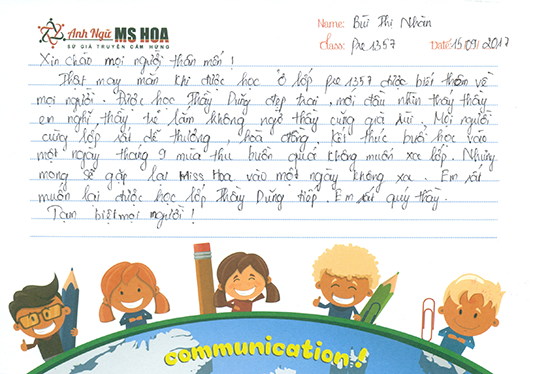 Anh Ngữ MS HOA
SỨ GIẢ TRUYỀN CẢM HỨNG
Name: Bùi Thị Nhàn
Class: Pre 1357 Date: 15/09/2017
Xin chào mọi người thân mến!
Thật may mắn khi được học ở lớp pre 1357 được biết thêm về
mọi người. Được học Thầy Dũng đẹp trai, mới đầu nhìn thấy thầy
em nghĩ thầy trẻ lắm không ngờ thầy cũng già rùi. Mọi người
cùng lớp rất dễ thương, hòa đồng. Kết thúc buổi học vào
một ngày tháng 9 mùa thu buồn quá không muốn xa lớp. Nhưng
mong sẽ gặp lại Miss Hoa vào một ngày không xa. Em rất
muốn lại được học lớp Thầy Dũng tiếp. Em rất quý thầy.
Tạm biệt mọi người!
communication!